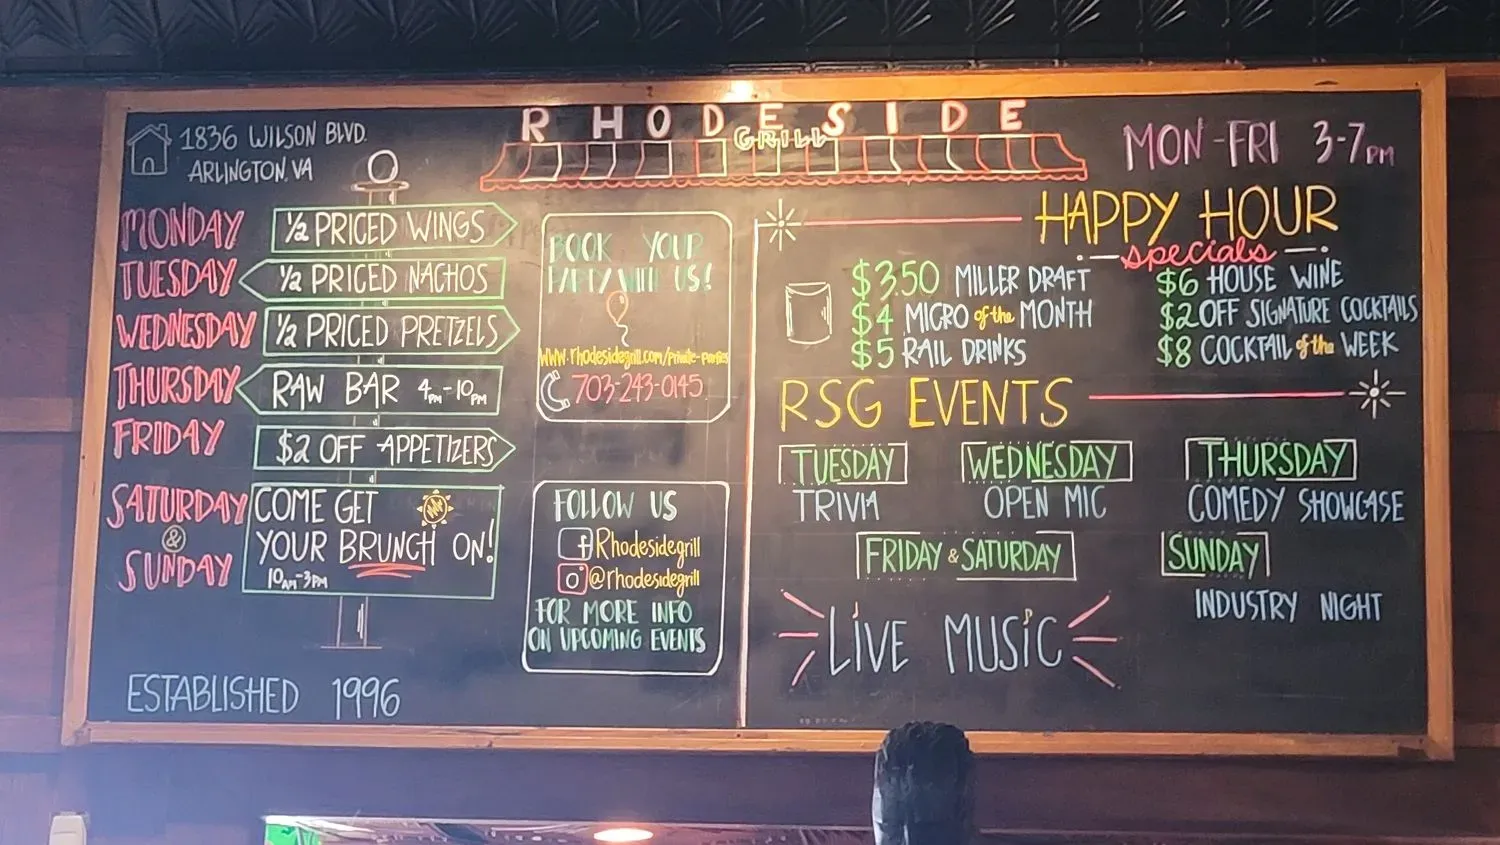 RHODESIDE
GRILL
1836 WILSON BLVD.
ARLINGTON, VA
MONDAY
1/2 PRICED WINGS
TUESDAY
1/2 PRICED NACHOS
WEDNESDAY
1/2 PRICED PRETZELS
THURSDAY
RAW BAR 4PM-10PM
FRIDAY
$2 OFF APPETIZERS
SATURDAY
&
SUNDAY
COME GET
YOUR BRUNCH ON!
10AM-3PM
ESTABLISHED 1996
BOOK YOUR
PARTY WITH US!
WWW.rhodesidegrill.com/Private-Parties
703-243-0145
FOLLOW US
f Rhodesidegrill
@rhodesidegrill
FOR MORE INFO
ON UPCOMING EVENTS
MON-FRI 3-7PM
HAPPY HOUR
specials
$3.50 MILLER DRAFT
$4 MICRO of the MONTH
$5 RAIL DRINKS
$6 HOUSE WINE
$2 OFF SIGNATURE COCKTAILS
$8 COCKTAIL of the WEEK
RSG EVENTS
TUESDAY
TRIVIA
WEDNESDAY
OPEN MIC
THURSDAY
COMEDY SHOWCASE
FRIDAY & SATURDAY
LIVE MUSIC
SUNDAY
INDUSTRY NIGHT